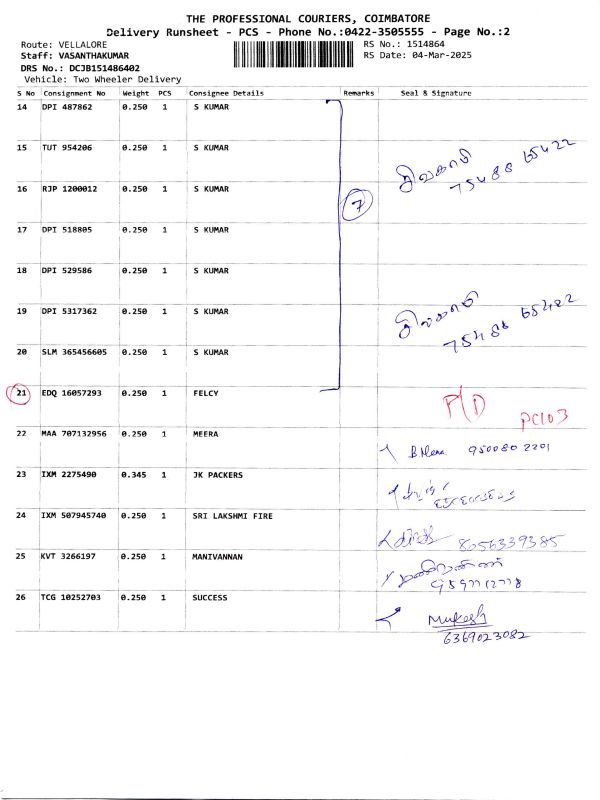 THE PROFESSIONAL COURIERS, COIMBATORE
Delivery Runsheet - PCS - Phone No.:0422-3505555 - Page No.:2
Route: VELLALORE
RS No.: 1514864
Staff: VASANTHAKUMAR
RS Date: 04-Mar-2025
DRS No.: DCJB151486402
Vehicle: Two Wheeler Delivery
S No Consignment No Weight PCS Consignee Details Remarks Seal & Signature
14 DPI 487862 0.250 1 S KUMAR
15 TUT 954206 0.250 1 S KUMAR
சிவகாமி
75488 65422
16 RJP 1200012 0.250 1 S KUMAR
7
17 DPI 518805 0.250 1 S KUMAR
18 DPI 529586 0.250 1 S KUMAR
19 DPI 5317362 0.250 1 S KUMAR
சிவகாமி
75488 65422
20 SLM 365456605 0.250 1 S KUMAR
21 EDQ 16057293 0.250 1 FELCY P/D PC103
22 MAA 707132956 0.250 1 MEERA B.Meera 9500802201
23 IXM 2275490 0.345 1 JK PACKERS
24 IXM 507945740 0.250 1 SRI LAKSHMI FIRE 8056339385
25 KVT 3266197 0.250 1 MANIVANNAN மணிவண்ணன்
26 TCG 10252703 0.250 1 SUCCESS Mukesh
6369023082